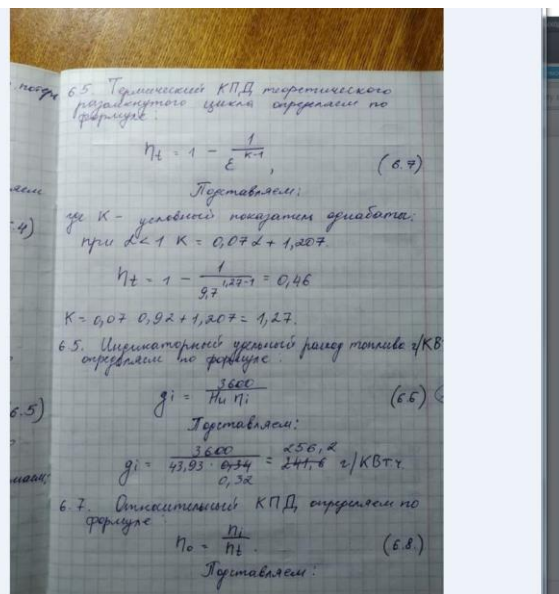 потери
6.5. Термический КПД теоретического
разомкнутого цикла определяем по
формуле:
ηt = 1 - 1/ε^к-1, (6.7)
Подставляем:
где К - условный показатель адиабаты.
6.4)
при α<1 К = 0,07α + 1,207.
ηt = 1 - 1/9,7^1,27-1 = 0,46
К = 0,07 0,92 + 1,207 = 1,27.
6.5. Индикаторный удельный расход топлива г/КВ
определяем по формуле.
gi = 3600/Hu ηi (6.6)
6.5)
Подставляем:
gi = 3600/43,93 · 0,34 0,32 = 256,2 241,6 г/КВт ч.
6.7. Относительный КПД определяем по
формуле:
η0 = ηi/ηt. (6.8.)
Подставляем: